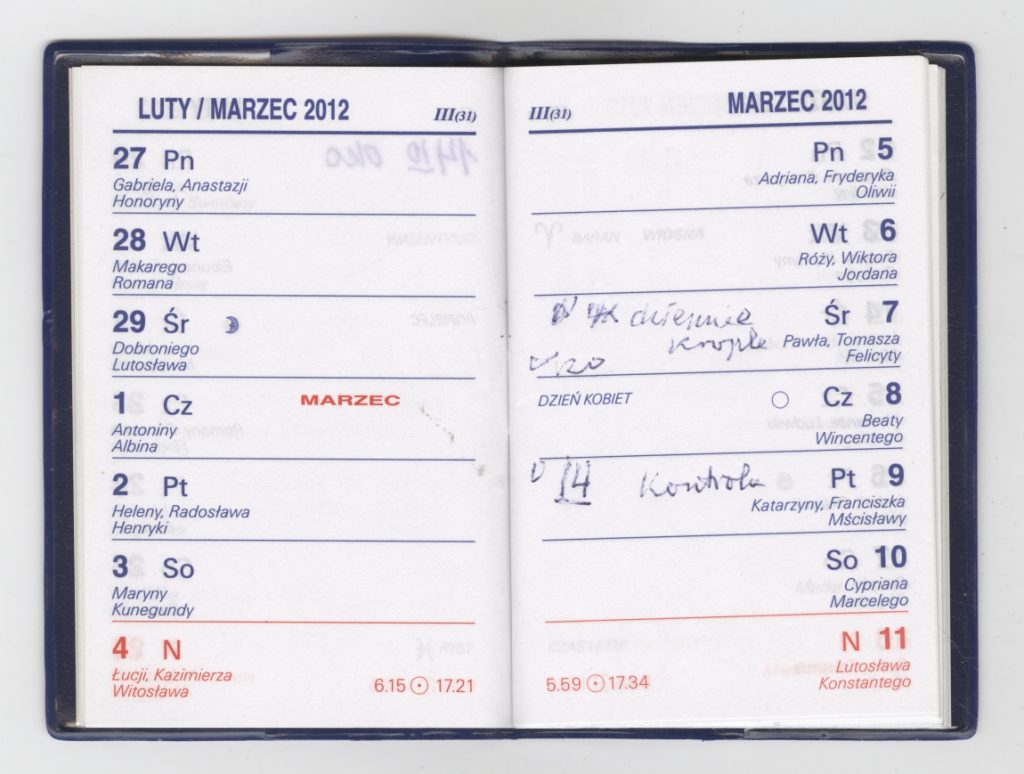 LUTY / MARZEC 2012 III(31)
27 Pn
Gabriela, Anastazji
Honoryny
28 Wt
Makarego
Romana
29 Śr
Dobroniego
Lutosława
1 Cz MARZEC
Antoniny
Albina
2 Pt
Heleny, Radosława
Henryki
3 So
Maryny
Kunegundy
4 N
Łucji, Kazimierza
Witosława
6.15 17.21
III(31) MARZEC 2012
Pn 5
Adriana, Fryderyka
Oliwii
Wt 6
Róży, Wiktora
Jordana
4x dziennie Śr 7
krople Pawła, Tomasza
oko Felicyty
DZIEŃ KOBIET Cz 8
Beaty
Wincentego
14 Kontrola Pt 9
Katarzyny, Franciszka
Mścisławy
So 10
Cypriana
Marcelego
N 11
Lutosława
Konstantego
5.59 17.34